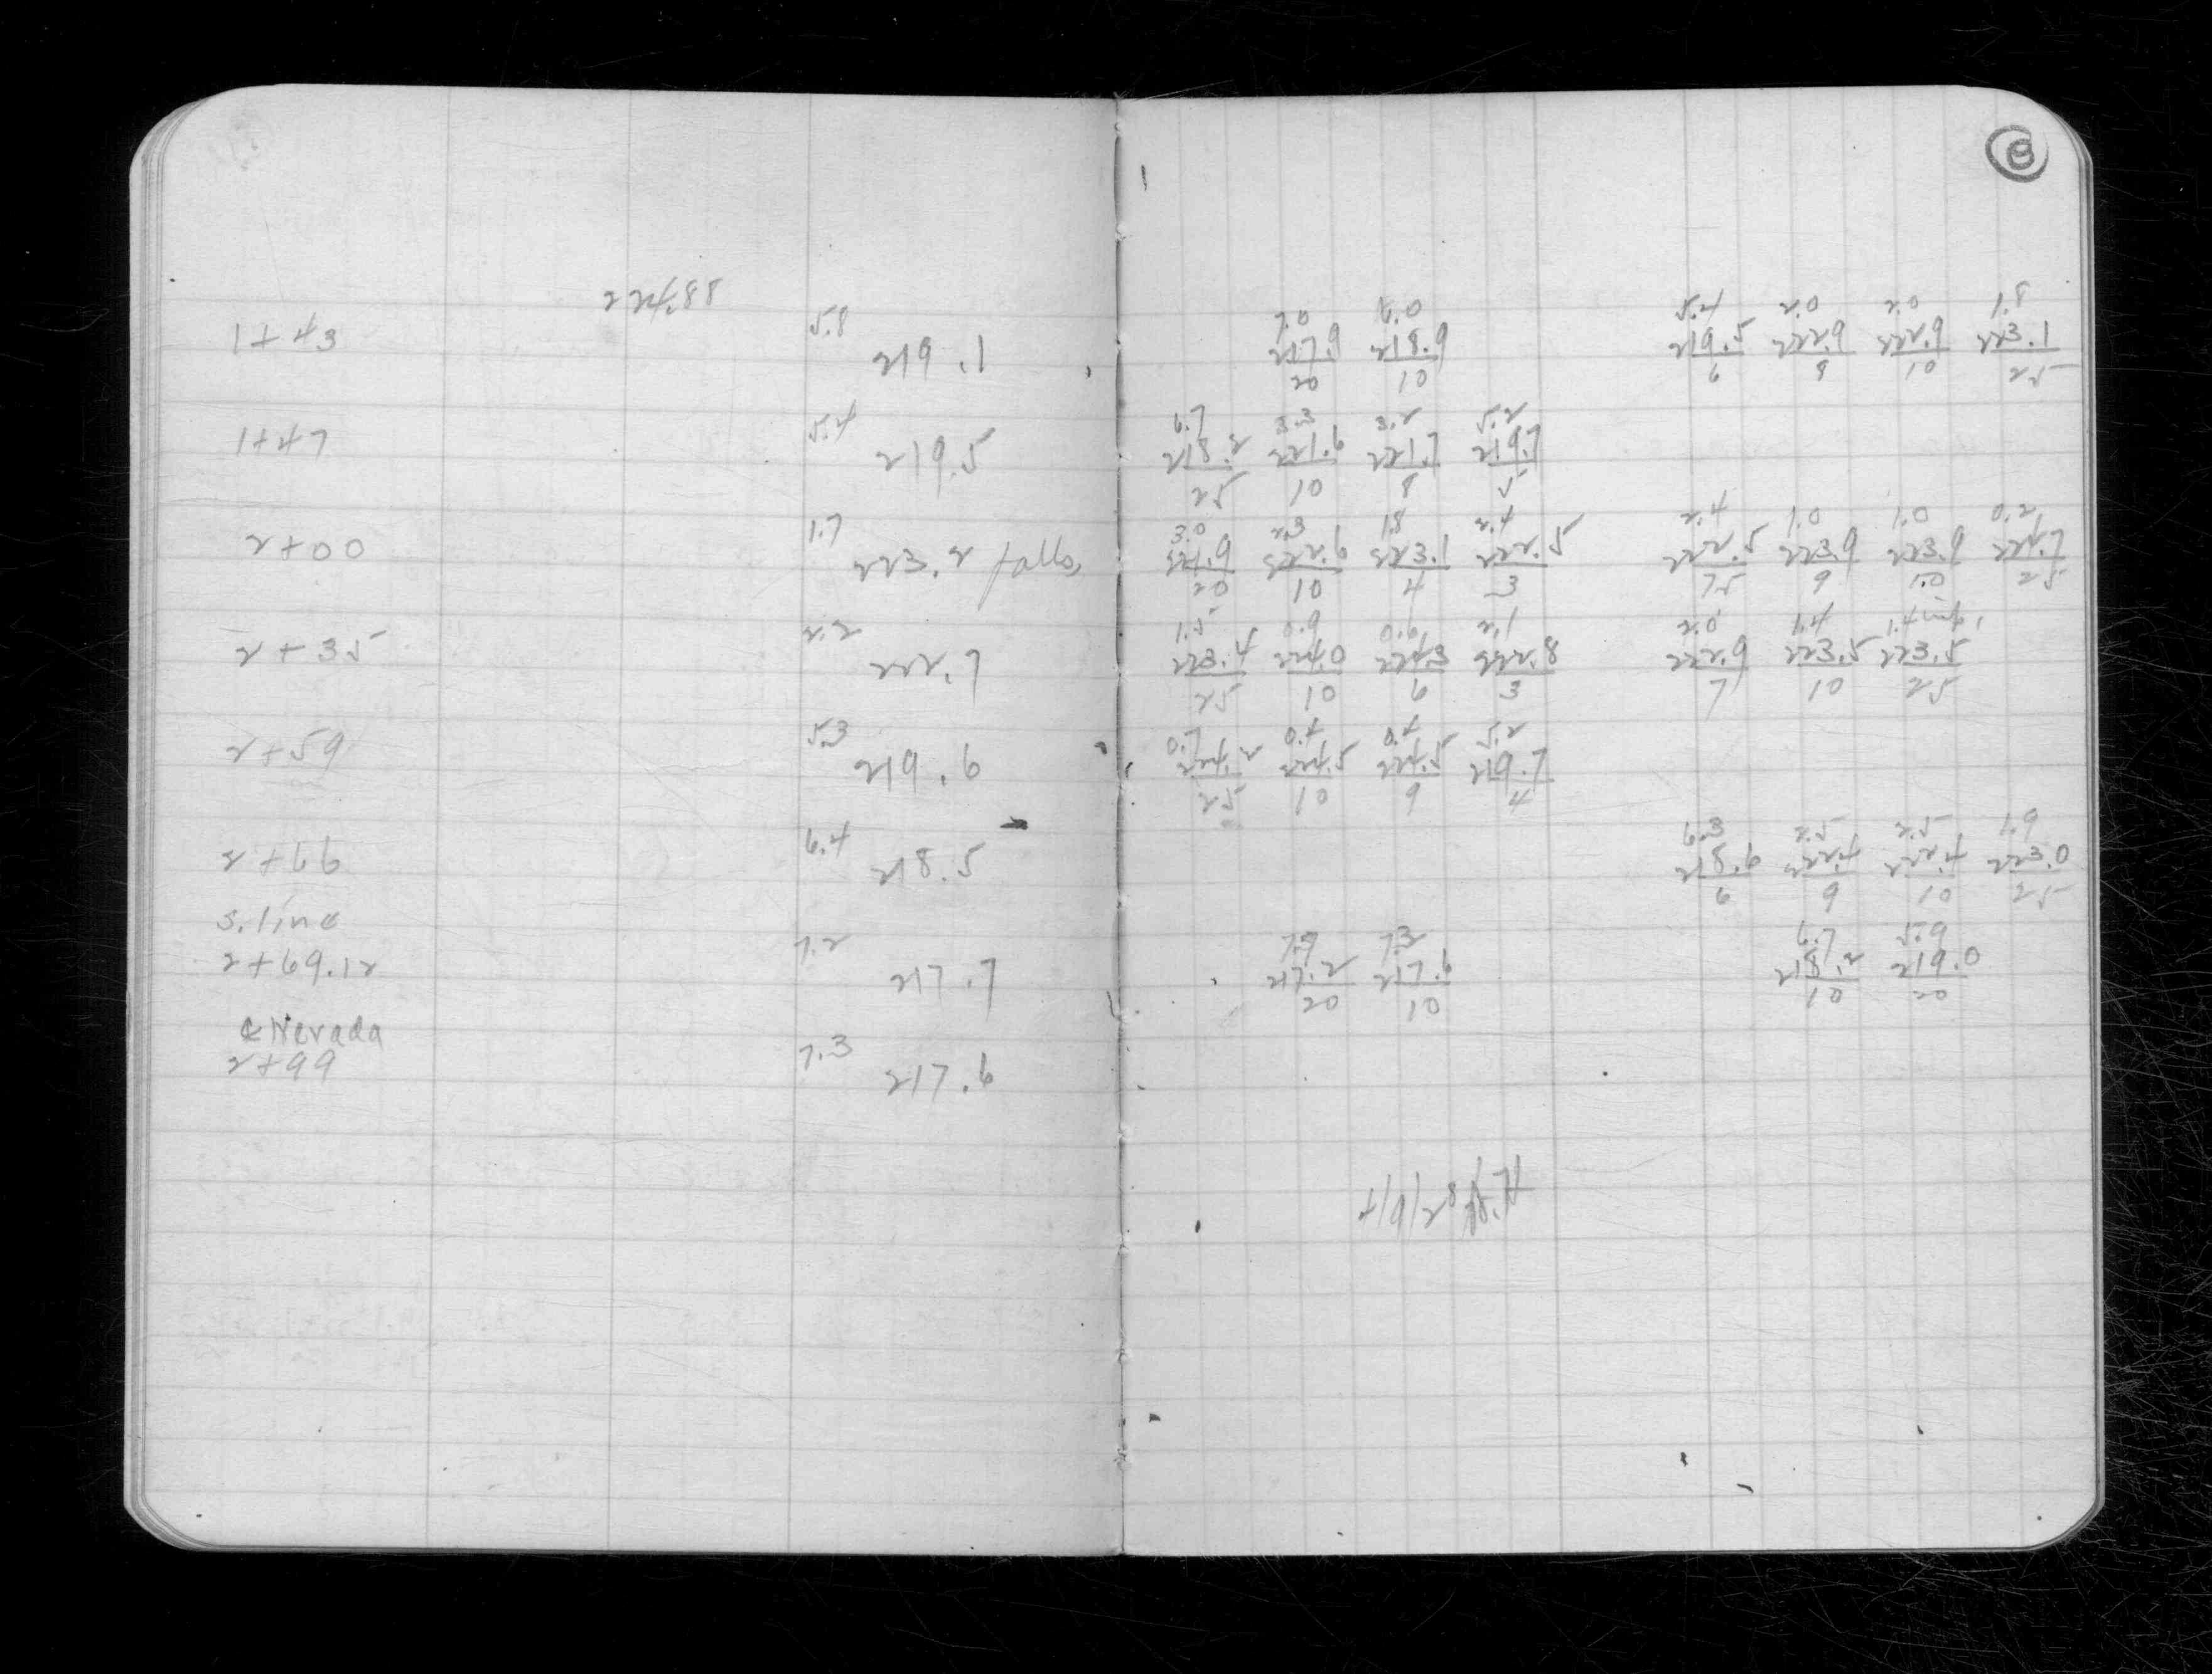 8
224.88
5.8 7.0 6.0 5.4 2.0 2.0 1.8
1+43 219.1 217.9 218.9 219.5 222.9 222.9 223.1
20 10 6 8 10 25
5.4 6.7 3.3 3.2 5.2
1+47 219.5 218.2 221.6 221.7 219.7
25 10 8 5
1.7 3.0 2.3 1.8 2.4 2.4 1.0 1.0 0.2
2+00 223.2 falls, 221.9 222.6 223.1 222.5 222.5 223.9 223.9 224.7
20 10 4 3 7.5 9 10 25
2.2 1.5 0.9 0.6 2.1 2.0 1.4 1.4
2+35 222.7 223.4 224.0 224.3 222.8 222.9 223.5 223.5
25 10 6 3 7 10 25
5.3 0.7 0.4 0.4 5.2
2+59 219.6 224.2 224.5 224.5 219.7
25 10 9 4
6.4 6.3 2.5 2.5 1.9
2+66 218.5 218.6 222.4 222.4 223.0
6 9 10 25
S. line
7.2 7.7 7.3 6.7 5.9
2+69.12 217.7 217.2 217.6 218.2 219.0
20 10 10 20
¢ Nevada
7.3
2+99 217.6